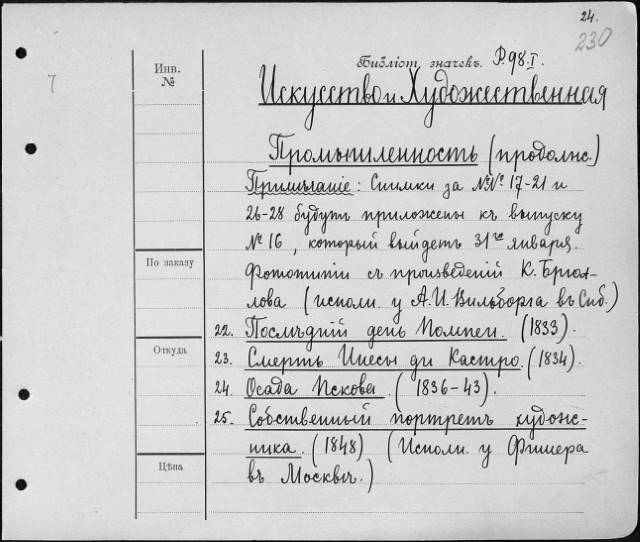 24.
230
Библіот. значекъ. Р.98.I.
7
Инв.
№
Искусство и Художественная
Промышленность (продолж.)
Примѣчаніе: Снимки за №№ 17-21 и
26-28 будутъ приложены къ выпуску
№ 16, который выйдетъ 31го января.
По заказу
Фототипіи съ произведеній К. Брюл-
лова (исполн. у А.И. Вильборга въ Спб.)
22. Послѣдній день Помпеи. (1833).
Откуда
23. Смерть Инесы ди Кастро. (1834).
24. Осада Пскова. (1836-43).
25. Собственный портретъ худож-
ника. (1848) (Исполн. у Фишера
Цѣна
въ Москвѣ.)